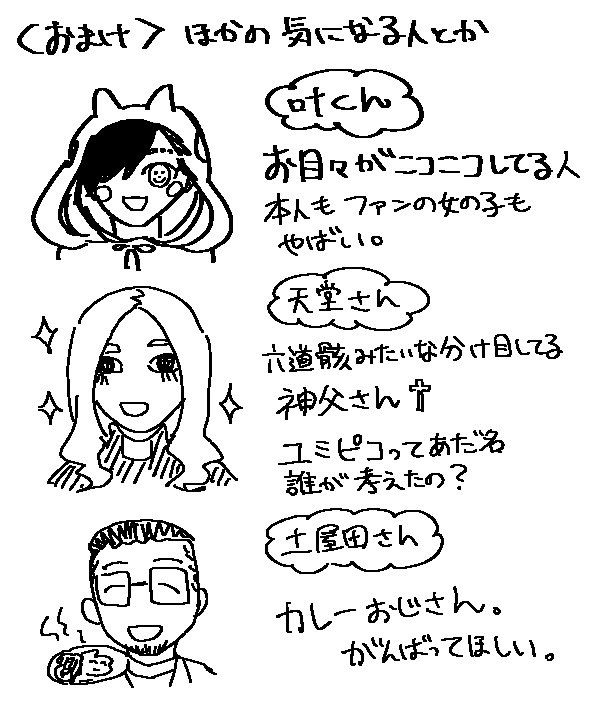 〈おまけ〉 ほかの気になる人とか
叶くん
お目々がニコニコしてる人
本人もファンの女の子も
やばい。
天堂さん
六道骸みたいな分け目してる
神父さん✝
ユミピコってあだ名
誰が考えたの？
土屋田さん
カレーおじさん。
がんばってほしい。